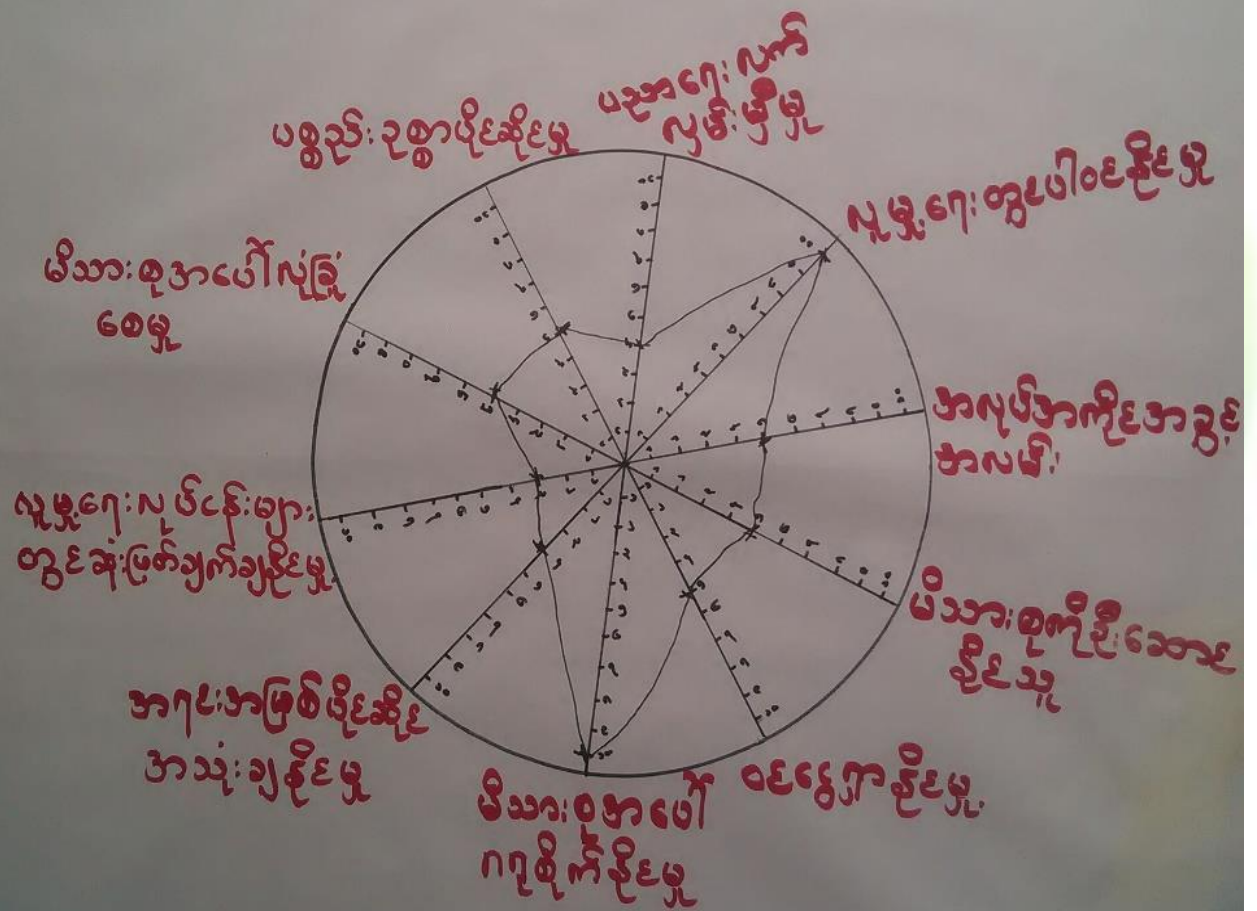 ပညာရေး လက်
လှမ်းမှီမှု
လူမှုရေးတွင်ပါဝင်နိုင်မှု
အလုပ်အကိုင်အခွင့်
အလမ်း
မိသားစုကိုဦးဆောင်
နိုင်သူ
ဝင်ငွေရှာနိုင်မှု
မိသားစုအပေါ်
ဂရုစိုက်နိုင်မှု
အရင်းအမြစ်ပိုင်ဆိုင်
အသုံးချနိုင်မှု
လူမှုရေးလုပ်ငန်းများ
တွင်ဆုံးဖြတ်ချက်ချနိုင်မှု
မိသားစုအပေါ်လုံခြုံ
စေမှု
ပစ္စည်းဥစ္စာပိုင်ဆိုင်မှု